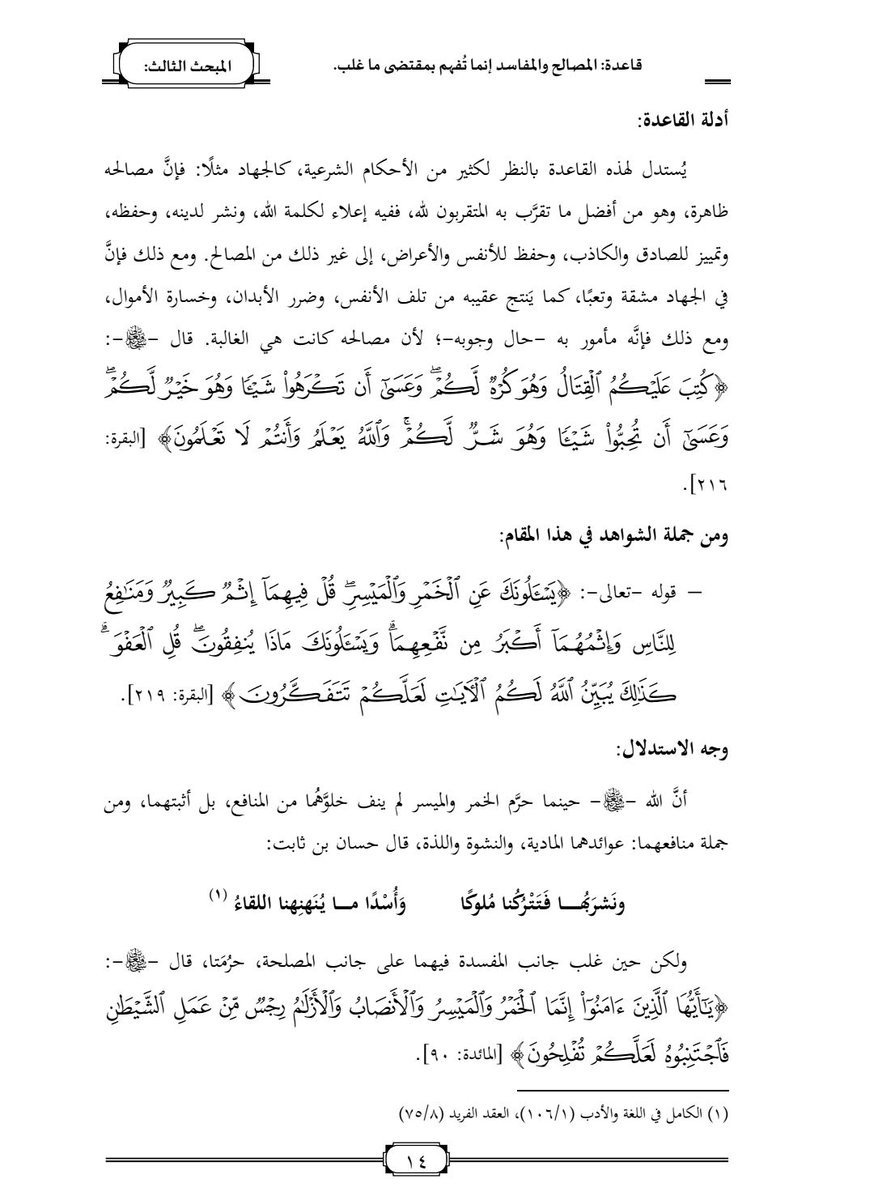 المبحث الثالث:
قاعدة: المصالح والمفاسد إنما تُفهم بمقتضى ما غلب.
أدلة القاعدة:
يُستدل لهذه القاعدة بالنظر لكثير من الأحكام الشرعية، كالجهاد مثلًا: فإنَّ مصالحه
ظاهرة، وهو من أفضل ما تقرَّب به المتقربون لله، ففيه إعلاء لكلمة الله، ونشر لدينه، وحفظه،
وتمييز للصادق والكاذب، وحفظ للأنفس والأعراض، إلى غير ذلك من المصالح. ومع ذلك فإنَّ
في الجهاد مشقة وتعبًا، كما يَنتج عقيبه من تلف الأنفس، وضرر الأبدان، وخسارة الأموال،
ومع ذلك فإنَّه مأمور به –حال وجوبه–؛ لأن مصالحه كانت هي الغالبة. قال –ﷻ–:
﴿كُتِبَ عَلَيۡكُمُ ٱلۡقِتَالُ وَهُوَ كُرۡهٞ لَّكُمۡۖ وَعَسَىٰٓ أَن تَكۡرَهُواْ شَيۡـٔٗا وَهُوَ خَيۡرٞ لَّكُمۡۖ
وَعَسَىٰٓ أَن تُحِبُّواْ شَيۡـٔٗا وَهُوَ شَرّٞ لَّكُمۡۚ وَٱللَّهُ يَعۡلَمُ وَأَنتُمۡ لَا تَعۡلَمُونَ﴾ [البقرة:
٢١٦].
ومن جملة الشواهد في هذا المقام:
– قوله –تعالى–: ﴿يَسۡـَٔلُونَكَ عَنِ ٱلۡخَمۡرِ وَٱلۡمَيۡسِرِۖ قُلۡ فِيهِمَآ إِثۡمٞ كَبِيرٞ وَمَنَٰفِعُ
لِلنَّاسِ وَإِثۡمُهُمَآ أَكۡبَرُ مِن نَّفۡعِهِمَاۗ وَيَسۡـَٔلُونَكَ مَاذَا يُنفِقُونَۖ قُلِ ٱلۡعَفۡوَۗ
كَذَٰلِكَ يُبَيِّنُ ٱللَّهُ لَكُمُ ٱلۡأٓيَٰتِ لَعَلَّكُمۡ تَتَفَكَّرُونَ﴾ [البقرة: ٢١٩].
وجه الاستدلال:
أنَّ الله –ﷻ– حينما حرَّم الخمر والميسر لم ينف خلوَّهُما من المنافع، بل أثبتهما، ومن
جملة منافعهما: عوائدهما المادية، والنشوة واللذة، قال حسان بن ثابت:
ونَشرَبُهـــا فَتَتْرُكُنا مُلوكًا وَأُسْدًا مـــا يُنَهنِهنا اللقاءُ (١)
ولكن حين غلب جانب المفسدة فيهما على جانب المصلحة، حرُمَتا، قال –ﷻ–:
﴿يَٰٓأَيُّهَا ٱلَّذِينَ ءَامَنُوٓاْ إِنَّمَا ٱلۡخَمۡرُ وَٱلۡمَيۡسِرُ وَٱلۡأَنصَابُ وَٱلۡأَزۡلَٰمُ رِجۡسٞ مِّنۡ عَمَلِ ٱلشَّيۡطَٰنِ
فَٱجۡتَنِبُوهُ لَعَلَّكُمۡ تُفۡلِحُونَ﴾ [المائدة: ٩٠].
(١) الكامل في اللغة والأدب (١٠٦/١)، العقد الفريد (٧٥/٨)
١٤